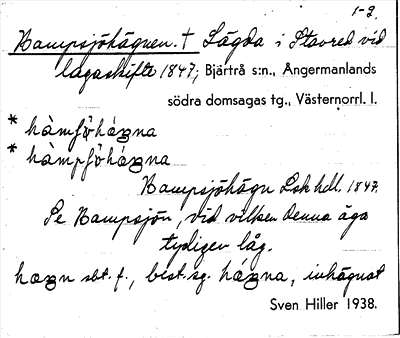 1-2.
Kampsjöhägnen. † Lägda i Stavred vid
lagaskifte 1847; Bjärtrå s:n., Ångermanlands
södra domsagas tg., Västernorrl. l.
* hàmʃö̀hágna
* hàmpʃö̀hágna
Kampsjöhägn Lsk hdl. 1847.
Se Kampsjön, vid vilken denna äga
tydligen låg.
hægn sbt. f., best. sg. hágna, inhägnat
Sven Hiller 1938.